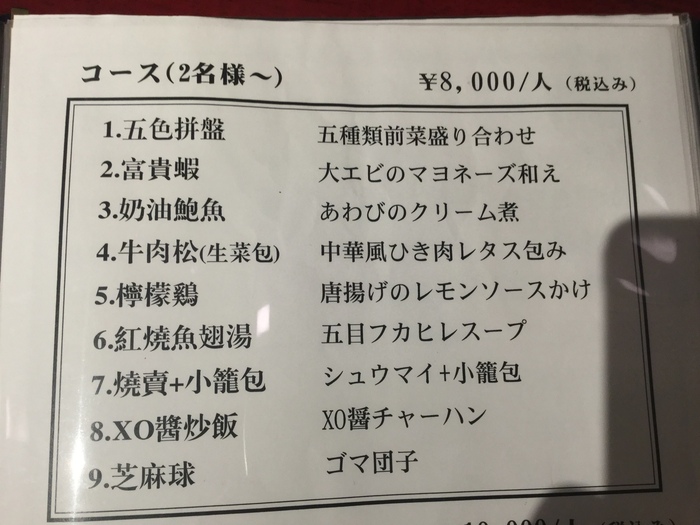 コース(2名様～) ¥8,000/人 (税込み)
1.五色拼盤 五種類前菜盛り合わせ
2.富貴蝦 大エビのマヨネーズ和え
3.奶油鮑魚 あわびのクリーム煮
4.牛肉松(生菜包) 中華風ひき肉レタス包み
5.檸檬鶏 唐揚げのレモンソースかけ
6.紅燒魚翅湯 五目フカヒレスープ
7.燒賣+小籠包 シュウマイ+小籠包
8.XO醬炒飯 XO醤チャーハン
9.芝麻球 ゴマ団子